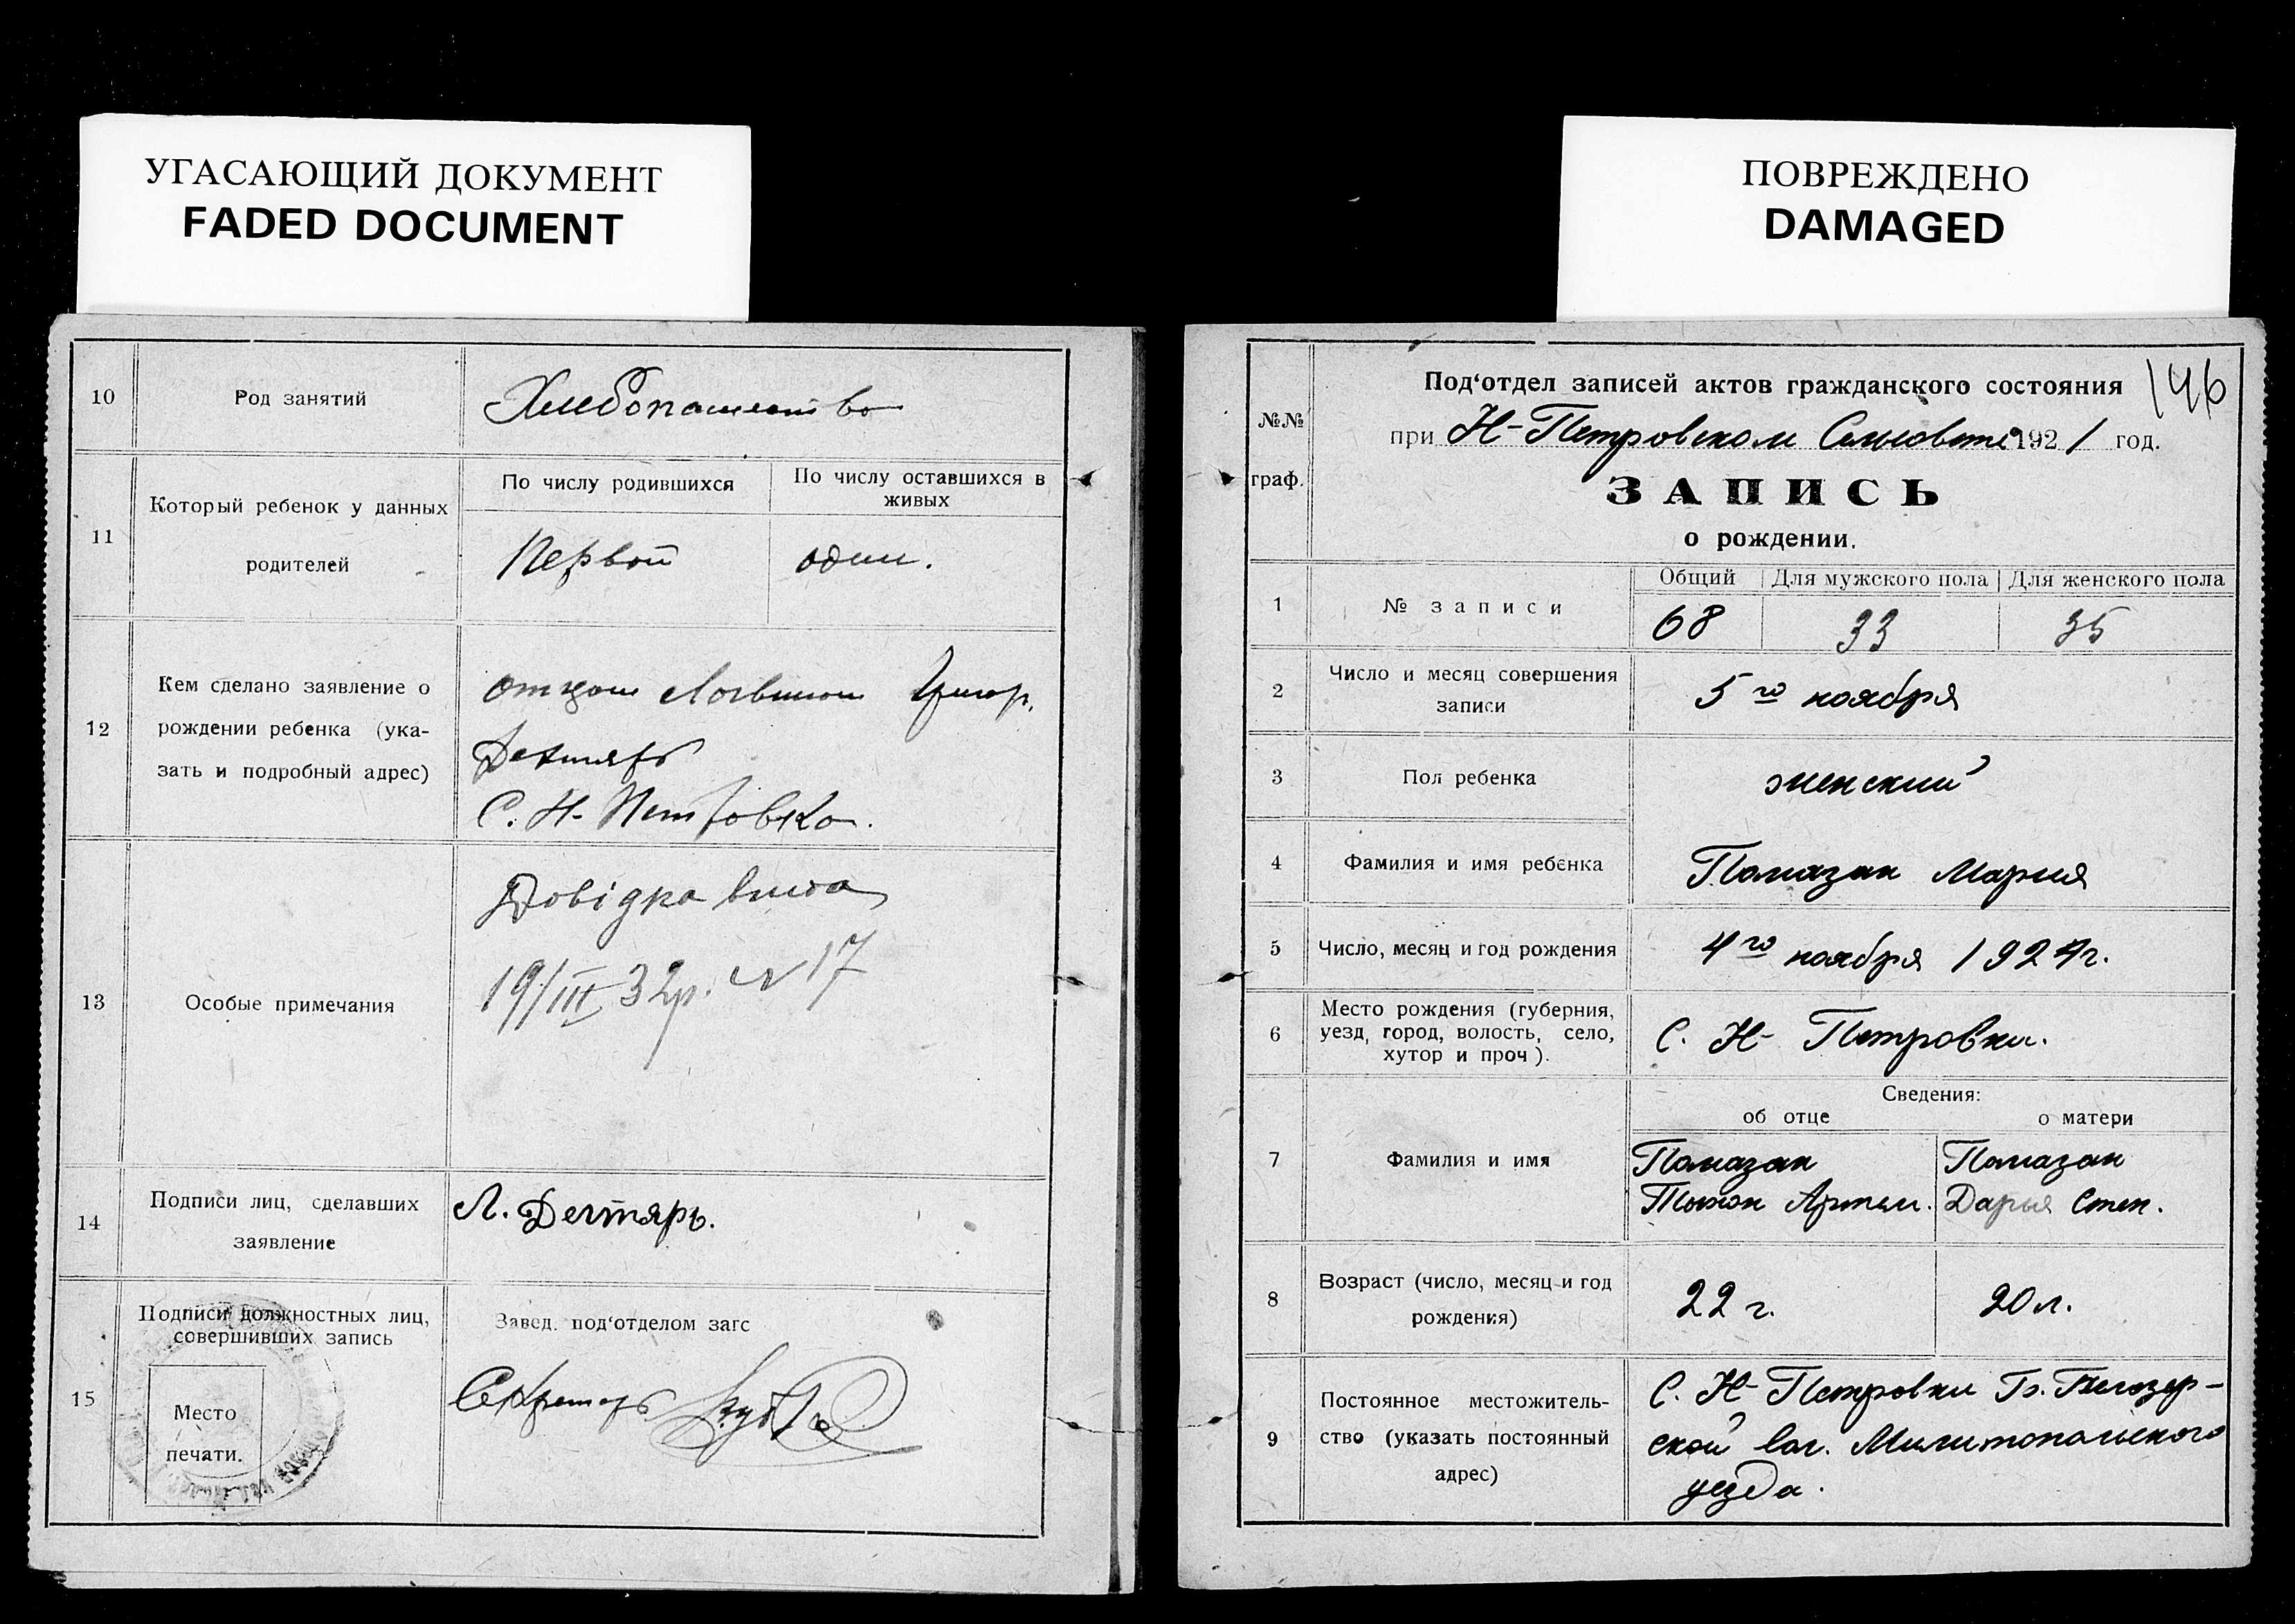 УГАСАЮЩИЙ ДОКУМЕНТ
FADED DOCUMENT
10
Род занятий
Хлебопашество
11
Который ребенок у данных
родителей
По числу родившихся
По числу оставшихся в
живых
Первой
один.
12
Кем сделано заявление о
рождении ребенка (ука-
зать и подробный адрес)
отцом Логвином Григор.
Дехтярь
С. Н-Петровка.
13
Особые примечания
Довідка
19/III 32р. N 17
14
Подписи лиц, сделавших
заявление
Л. Дегтярь.
15
Подписи должностных лиц,
совершивших запись
Место
печати.
Завед. под‘отделом загс
Секретарь
ПОВРЕЖДЕНО
DAMAGED
146
№№
граф.
Под‘отдел записей актов гражданского состояния
при Н-Петровском Сельсовете 1921 год.
ЗАПИСЬ
о рождении.
1
№ записи
Общий
Для мужского пола
Для женского пола
68
33
35
2
Число и месяц совершения
записи
5го ноября
3
Пол ребенка
женский
4
Фамилия и имя ребенка
Помазан Мария
5
Число, месяц и год рождения
4го ноября 1921г.
6
Место рождения (губерния,
уезд, город, волость, село,
хутор и проч).
С. Н-Петровки.
Сведения:
об отце
о матери
7
Фамилия и имя
Помазан
Тихон Артем.
Помазан
Дарья Степ.
8
Возраст (число, месяц и год
рождения)
22 г.
20 л.
9
Постоянное местожитель-
ство (указать постоянный
адрес)
С. Н-Петровки Б. Белозер-
ской вол. Милитопольского
уезда.